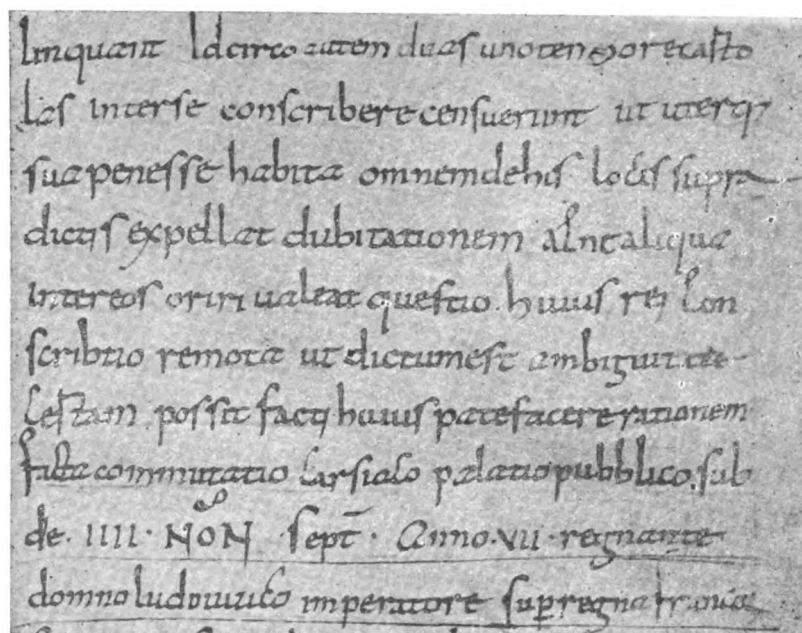 linquant Idcirco autem duas uno tenore casto
las inter se conscribere censuerunt ut uterq;
sua penes se habita omnem de his locis supra
dictis expellat dubitationem aliqua
inter eos oriri ualeat questio. huius rei con
scribtio remota ut dictum est ambiguitate
certam possit facti huius patefacere rationem
facta commutatio palatio pubblico. sub
die. IIII. NON. sept. Anno. VII. regnante
domno ludouuico imperatore sup regna